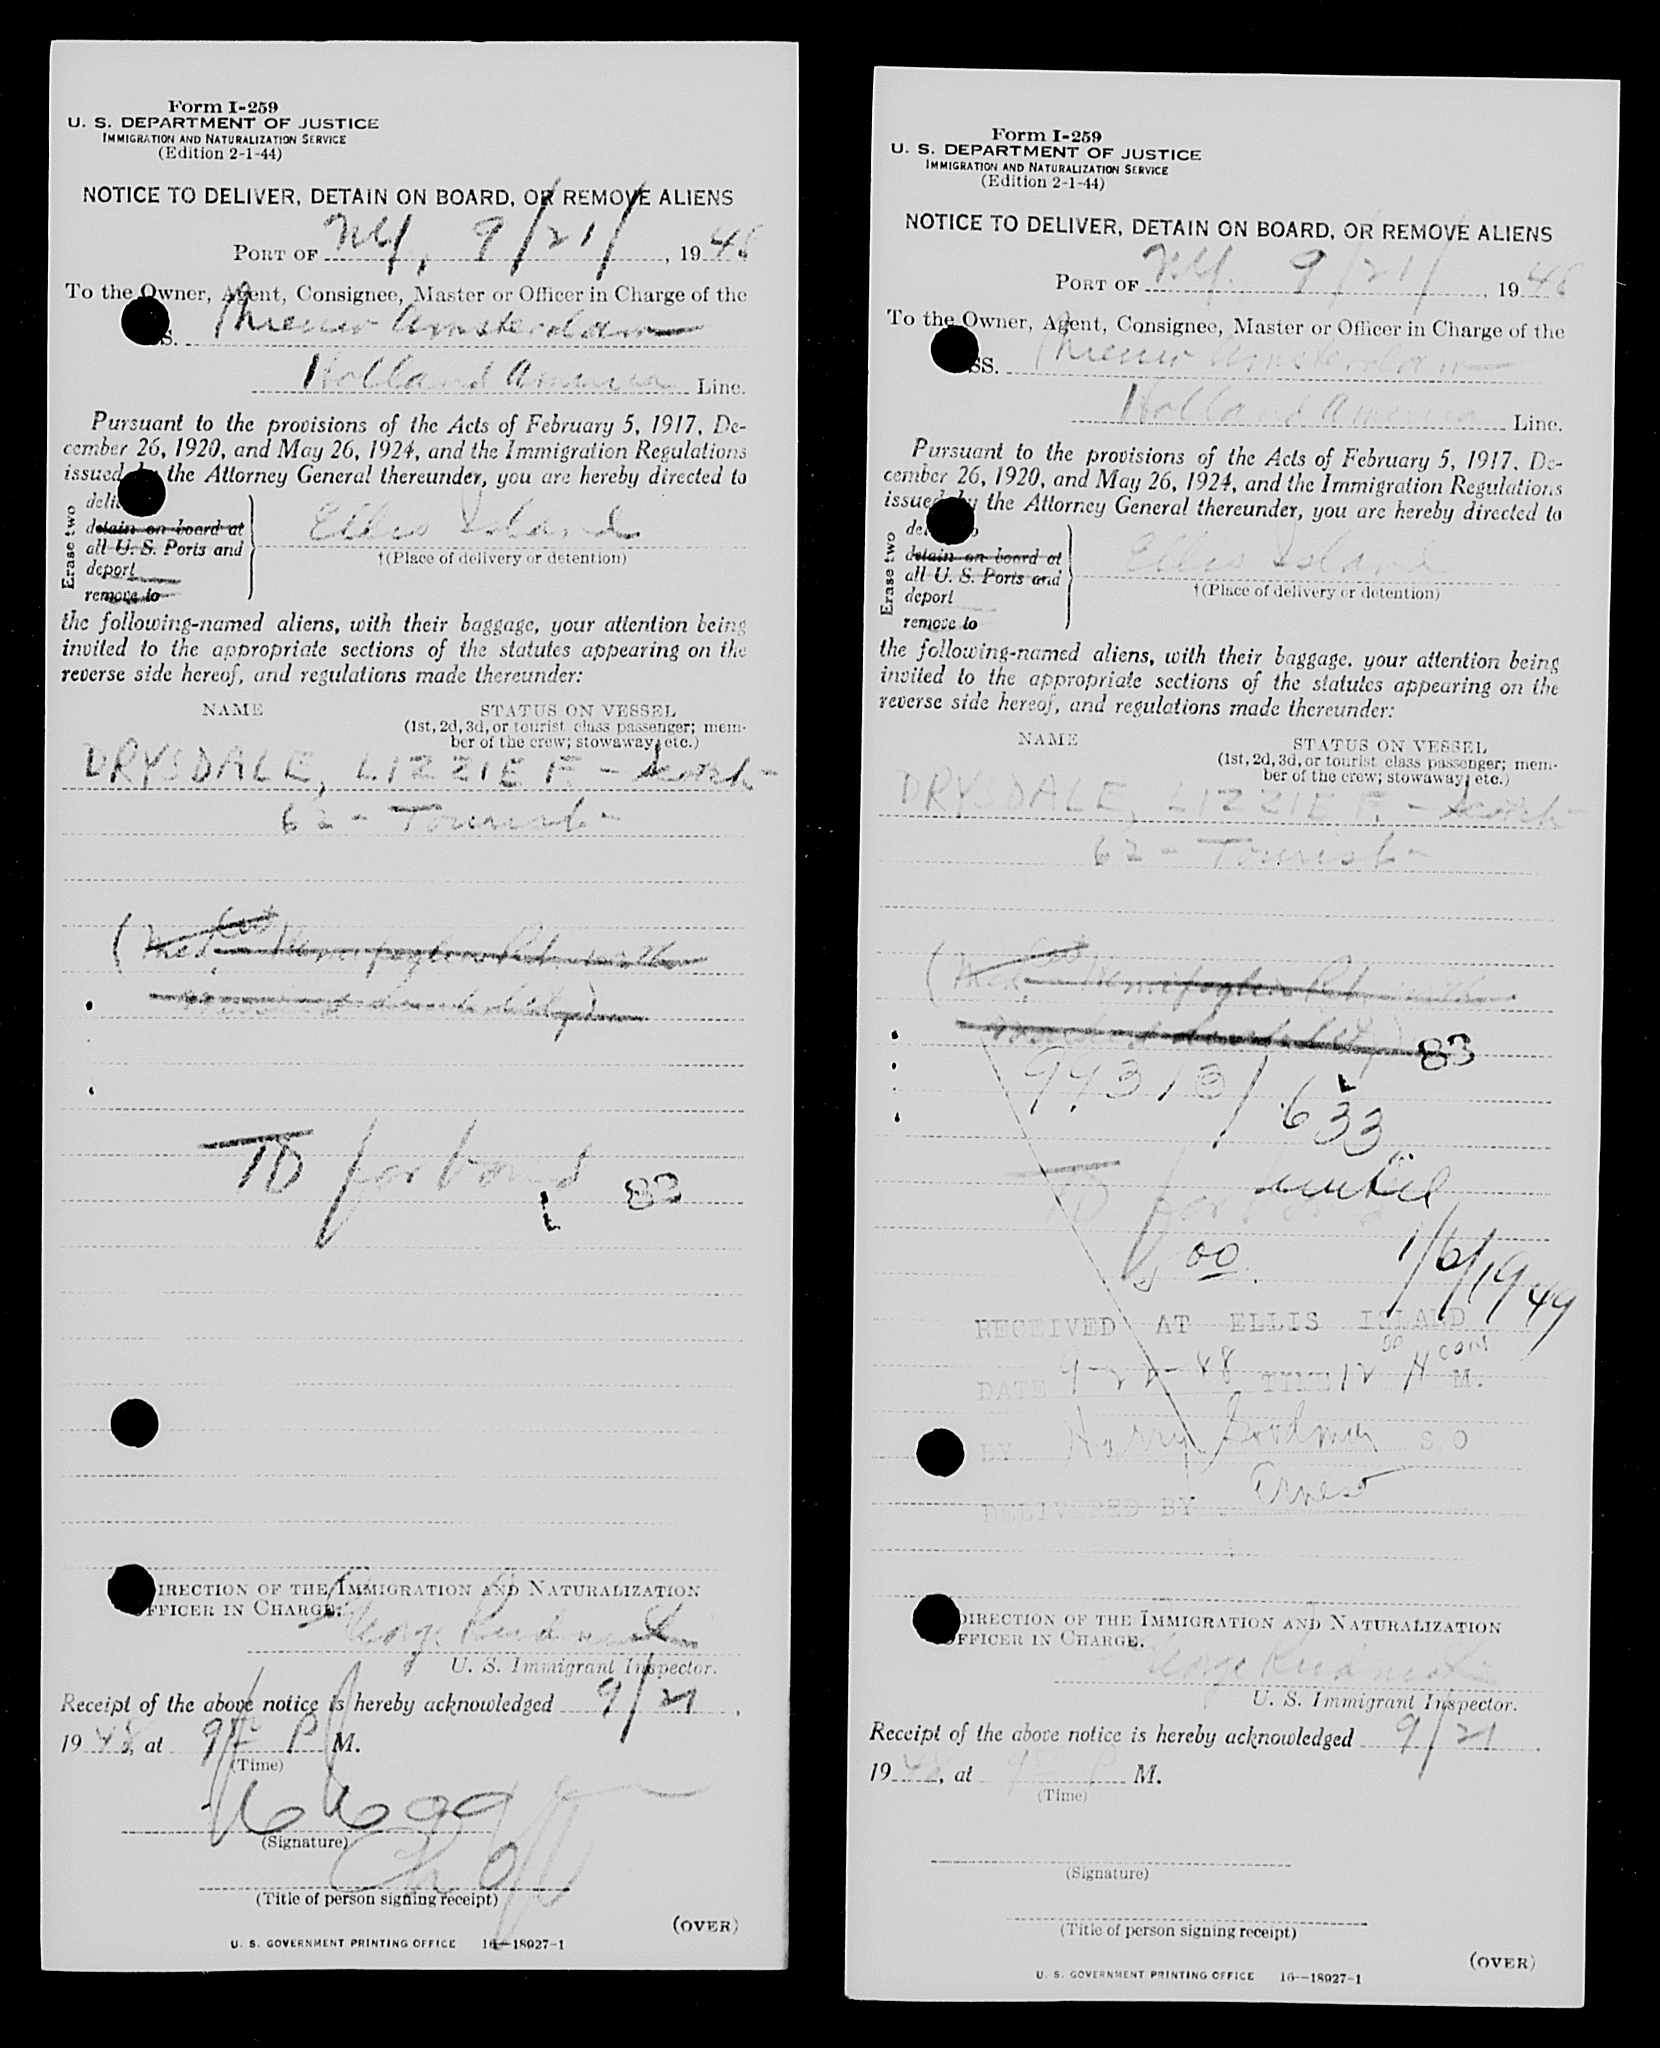 Form I-259
U. S. DEPARTMENT OF JUSTICE
IMMIGRATION AND NATURALIZATION SERVICE
(Edition 2-1-44)
NOTICE TO DELIVER, DETAIN ON BOARD, OR REMOVE ALIENS
PORT OF NY, 9/21/, 1948
To the Owner, Agent, Consignee, Master or Officer in Charge of the
S. Nieuw Amsterdam
Holland America Line.
Pursuant to the provisions of the Acts of February 5, 1917, De-
cember 26, 1920, and May 26, 1924, and the Immigration Regulations
issued by the Attorney General thereunder, you are hereby directed to
Erase two
deli
detain on board at
all U. S. Ports and
deport
remove to
Ellis Island
†(Place of delivery or detention)
the following-named aliens, with their baggage, your attention being
invited to the appropriate sections of the statutes appearing on the
reverse side hereof, and regulations made thereunder:
NAME STATUS ON VESSEL
(1st, 2d, 3d, or tourist class passenger; mem-
ber of the crew; stowaway, etc.)
DRYSDALE, LIZZIE F. - Scotch -
62 - Tourist -
(Med. Cert
TD for bond
83
DIRECTION OF THE IMMIGRATION AND NATURALIZATION
OFFICER IN CHARGE:
George
U. S. Immigrant Inspector.
Receipt of the above notice is hereby acknowledged 9/21,
1948, at 9 P M.
(Time)
(Signature)
(Title of person signing receipt)
(OVER)
U. S. GOVERNMENT PRINTING OFFICE 16—18927-1
Form I-259
U. S. DEPARTMENT OF JUSTICE
IMMIGRATION AND NATURALIZATION SERVICE
(Edition 2-1-44)
NOTICE TO DELIVER, DETAIN ON BOARD, OR REMOVE ALIENS
PORT OF NY. 9/21/, 1948
To the Owner, Agent, Consignee, Master or Officer in Charge of the
SS. Nieuw Amsterdam
Holland America Line.
Pursuant to the provisions of the Acts of February 5, 1917, De-
cember 26, 1920, and May 26, 1924, and the Immigration Regulations
issued by the Attorney General thereunder, you are hereby directed to
Erase two
del
detain on board at
all U. S. Ports and
deport
remove to
Ellis Island
†(Place of delivery or detention)
the following-named aliens, with their baggage, your attention being
invited to the appropriate sections of the statutes appearing on the
reverse side hereof, and regulations made thereunder:
NAME STATUS ON VESSEL
(1st, 2d, 3d, or tourist class passenger; mem-
ber of the crew; stowaway, etc.)
DRYSDALE, LIZZIE F. - Scotch -
62 - Tourist -
(Med. Cert
83
633
TD for until
1/6/1949
RECEIVED AT ELLIS ISLAND
DATE 9-21-48 TIME 12 M.
BY Harry S O
DELIVERED BY
DIRECTION OF THE IMMIGRATION AND NATURALIZATION
OFFICER IN CHARGE.
George
U. S. Immigrant Inspector.
Receipt of the above notice is hereby acknowledged 9/21.
1948, at 9 P M.
(Time)
(Signature)
(Title of person signing receipt)
(OVER)
U. S. GOVERNMENT PRINTING OFFICE 16—18927-1